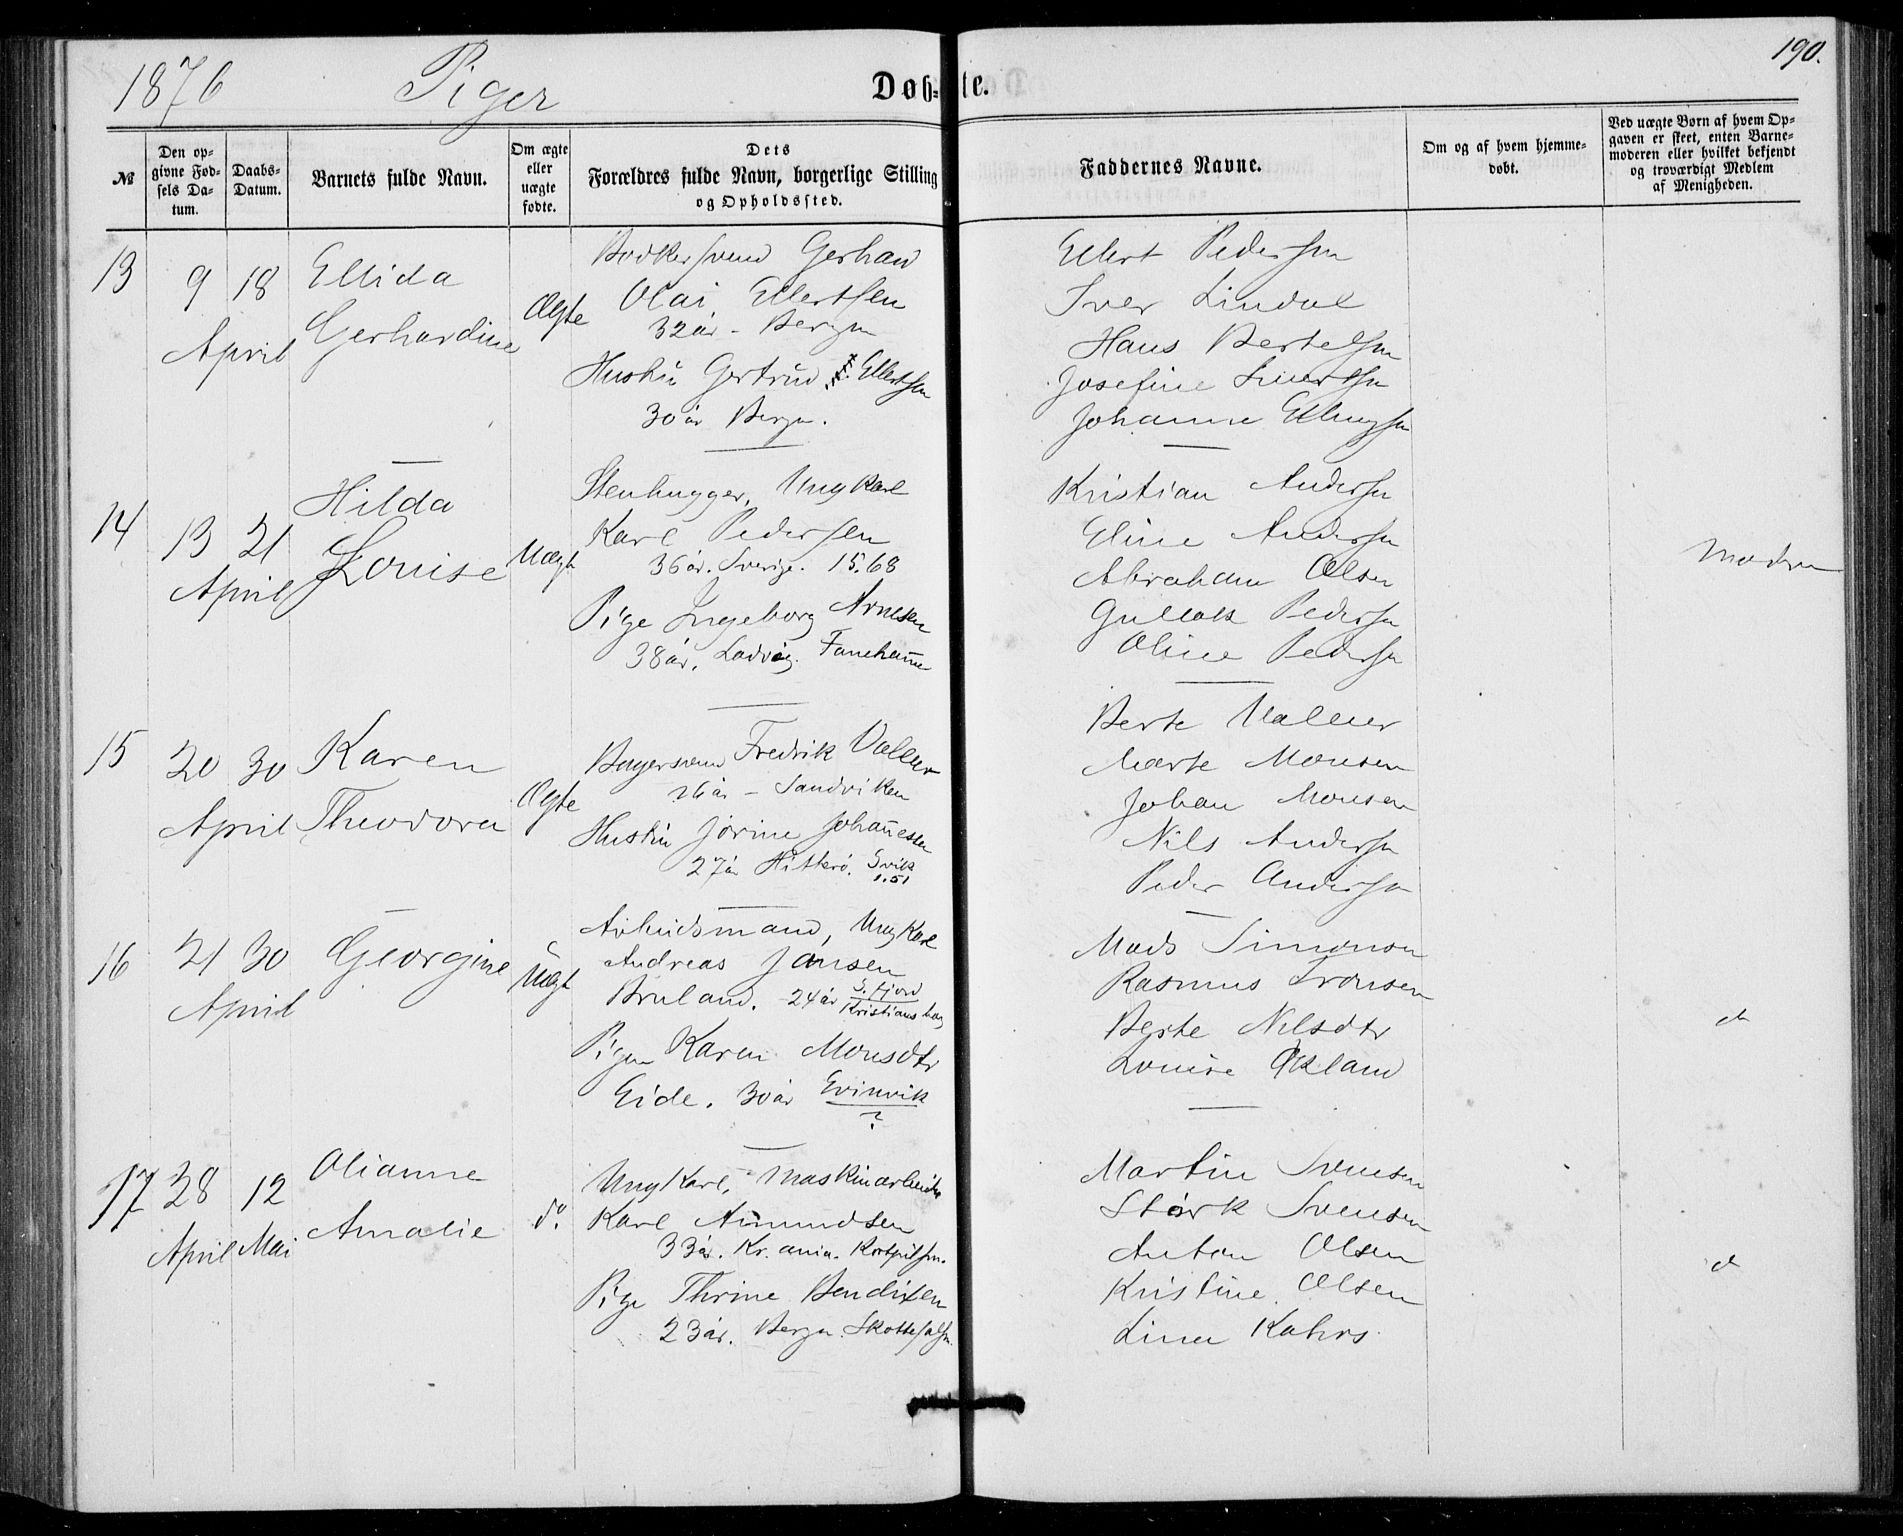 1876 Piger Døb-te. 190.
№
Den op-
givne Fød-
sels Da-
tum.
Daabs-
Datum.
Barnets fulde Navn.
Om ægte
eller
uægte
fødte.
Dets
Forældres fulde Navn, borgerlige Stilling
og Opholdssted.
Faddernes Navne.
Om og af hvem hjemme-
døbt.
Ved uægte Børn af hvem Op-
gaven er skeet, enten Barne-
moderen eller hvilket bekjendt
og troværdigt Medlem
af Menigheden.
13 9 18
April
Ellida
Gerhardine
Ægte
Bødkersvend Gerhard
Olai Ellertsen
32 år - Bergen
Hustru Gertrud Ellertsen
30 år Bergen.
Ellert Pedersen
Iver Lindal
Hans Bertelsen
Josefine
Johanne
14 13 21
April
Hilda
Louise
Uægt
Stenhugger, Ungkarl
Karl Pedersen
36 år. Sverige. 15.68
Pige Ingeborg Arnesen
38 år. Ladvig.
Kristian Andersen
Eline Andersen
Abraham Olsen
Gullak Pedersen
Oline Pedersen
Modren
15 20 30
April
Karen
Theodora
Ægte
Bagersvend Fredrik Valeur
26 år - Sandviken
Hustru Jørine Johannesen
27 år Hitterø. Svik
1.51
Berte Valeur
Marte Monsen
Johan Monsen
Nils Andersen
Peder Andersen
16 21 30
April
Georgine
Uægt
Arbeidsmand, Ungkarl
Andreas Jansen
Bruland. 24 år S. Fjord
Kristiansborg
Pigen Karen Monsdtr
Eide. 30 år Evinvik
?
Mads Simonsen
Rasmus Ironsen
Berte Nilsdtr
Louise Økland
d
17 28 12
April Mai
Olianne
Amalie
do.
Ungkarl, Maskinarbeider
Karl Amundsen
33 år. Kr.ania.
Pige Thrine Bendixen
23 år. Bergen.
Martin Svensen
Størk Svensen
Anton Olsen
Kristine Olsen
Lina Kahrs
d